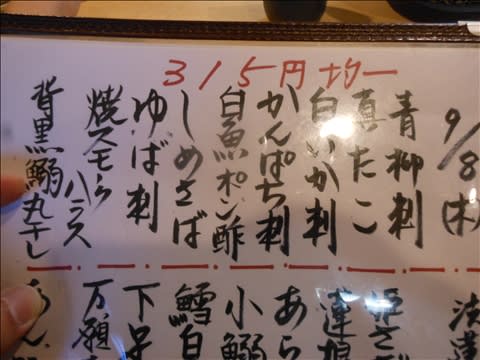 315円均一
9/8(木)
青柳刺
真たこ
白いか刺
かんぱち刺
白魚ポン酢
しめさば
ゆば刺
焼スモークハラス
背黒鰯丸干し
あら
小鰯
鱈白
万願